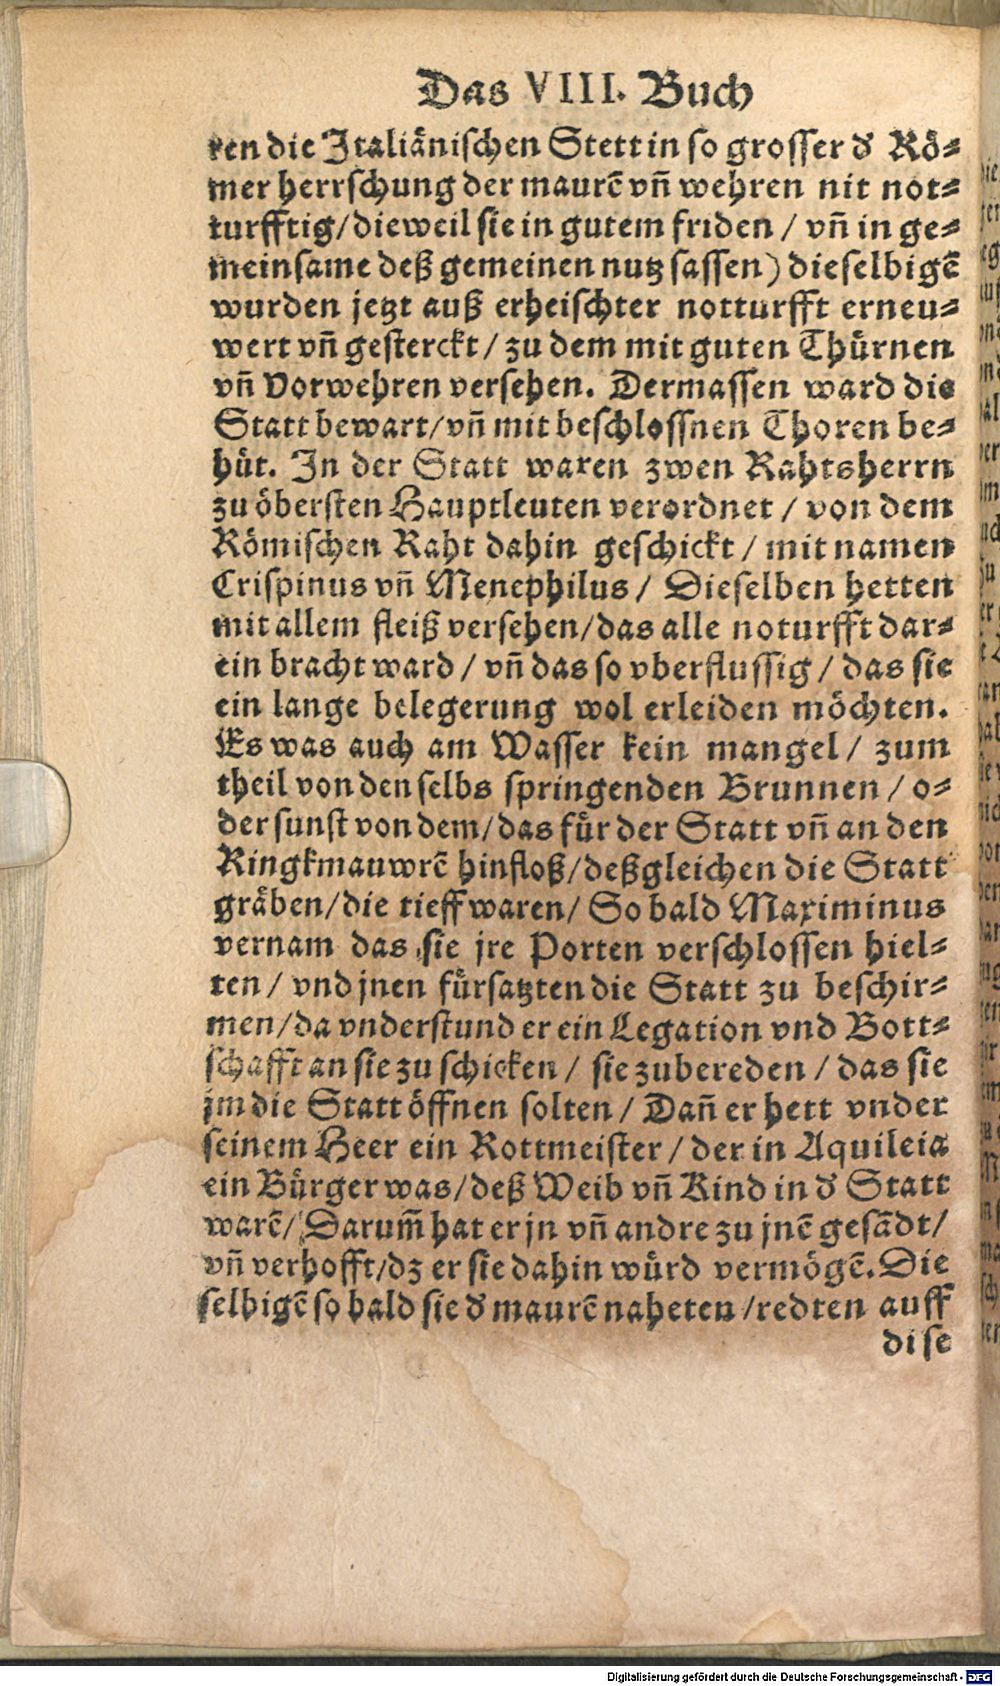 Das VIII. Buch
ren die Jtaliänischen Stett in so grosser d' Rö-
mer herrschung der maurē vñ wehren nit not-
turfftig/dieweil sie in gutem friden / vñ in ge-
meinsame deß gemeinen nutz sassen) dieselbigē
wurden jetzt auß erheischter notturfft erneu-
wert vñ gesterckt / zu dem mit guten Thürnen
vñ Vorwehren versehen. Dermassen ward die
Statt bewart/vñ mit beschlossnen Thoren be-
hüt. Jn der Statt waren zwen Rahtsherrn
zu öbersten Hauptleuten verordnet / von dem
Römischen Raht dahin geschickt / mit namen
Crispinus vñ Menephilus / Dieselben hetten
mit allem fleiß versehen/das alle noturfft dar-
ein bracht ward / vñ das so vberflussig / das sie
ein lange belegerung wol erleiden möchten.
Es was auch am Wasser kein mangel / zum
theil von den selbs springenden Brunnen / o-
der sunst von dem/das für der Statt vñ an den
Ringkmauwrē hinfloß/deßgleichen die Statt
gräben/die tieff waren/ So bald Maximinus
vernam das sie jre Porten verschlossen hiel-
ten / vnd jnen fürsatzten die Statt zu beschir-
men/da vnderstund er ein Legation vnd Bott-
schafft an sie zu schicken / sie zubereden / das sie
jm die Statt öffnen solten / Dañ er hett vnder
seinem Heer ein Rottmeister / der in Aquileia
ein Bürger was/deß Weib vñ Kind in d' Statt
warē/ Darum̄ hat er jn vñ andre zu jnē gesādt/
vñ verhofft/dz er sie dahin würd vermögē. Die
selbigē so bald sie d' maurē naheten /redten auff
dise
Digitalisierung gefördert durch die Deutsche Forschungsgemeinschaft - DFG